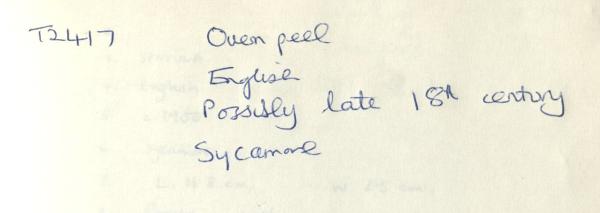 T2417 Oven peel
English
Possibly late 18th century
Sycamore